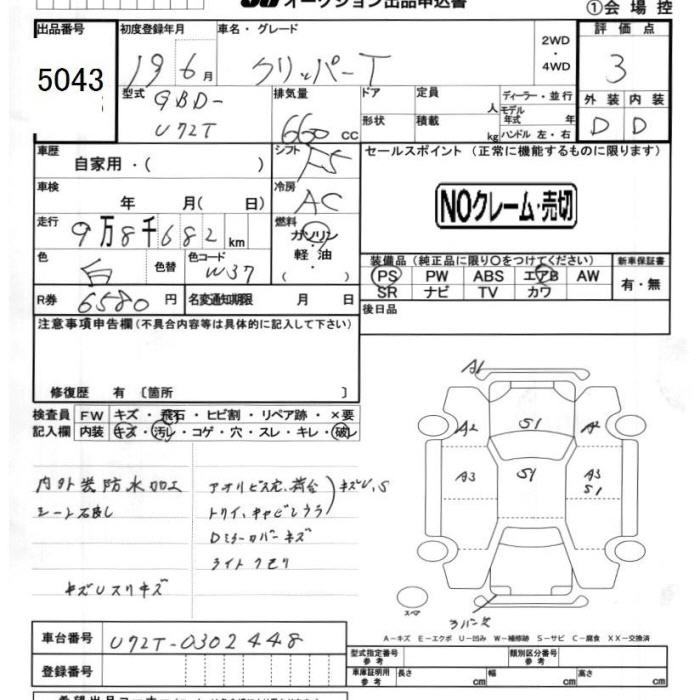 オークション出品申込書
①会場控
出品番号 初度登録年月 車名・グレード 評価点
5043 19 6月 クリッパーT 2WD・4WD 3
型式 GBD-U72T 排気量 660cc ドア 定員 人 ディーラー・並行
形状 積載 kg モデル年式 年 ハンドル 左・右
外装 内装
D D
車歴 自家用・( ) シフト F5 セールスポイント (正常に機能するものに限ります)
車検 年 月( 日) 冷房 AC
NOクレーム・売切
走行 9万8千682km 燃料 ガソリン・軽油
色 白 色替 色コード W37
装備品(純正品に限り○をつけてください) 新車保証書
PS PW ABS エアB AW 有・無
SR ナビ TV カワ
R券 6580円 名変通知期限 月 日
後日品
注意事項申告欄(不具合内容等は具体的に記入して下さい)
修復歴 有 〔箇所 〕
検査員 FW キズ・飛石・ヒビ割・リペア跡・×要
記入欄 内装 キズ・汚れ・コゲ・穴・スレ・キレ・破レ
A1
A2 S1 A2
A3 S1 A3 S1
内外装防水加工 アオリビス穴、荷台 キズU,S
トリイ、キャビンウラ
Dミラーカバーキズ
ライトクモリ
キズUスリキズ
スペア
A－キズ E－エクボ U－凹み W－補修跡 S－サビ C－腐食 XX－交換済
車台番号 U72T-0302448
型式指定番号 参考 類別区分番号 参考
登録番号 車庫証明用 参考 長さ cm 幅 cm 高さ cm